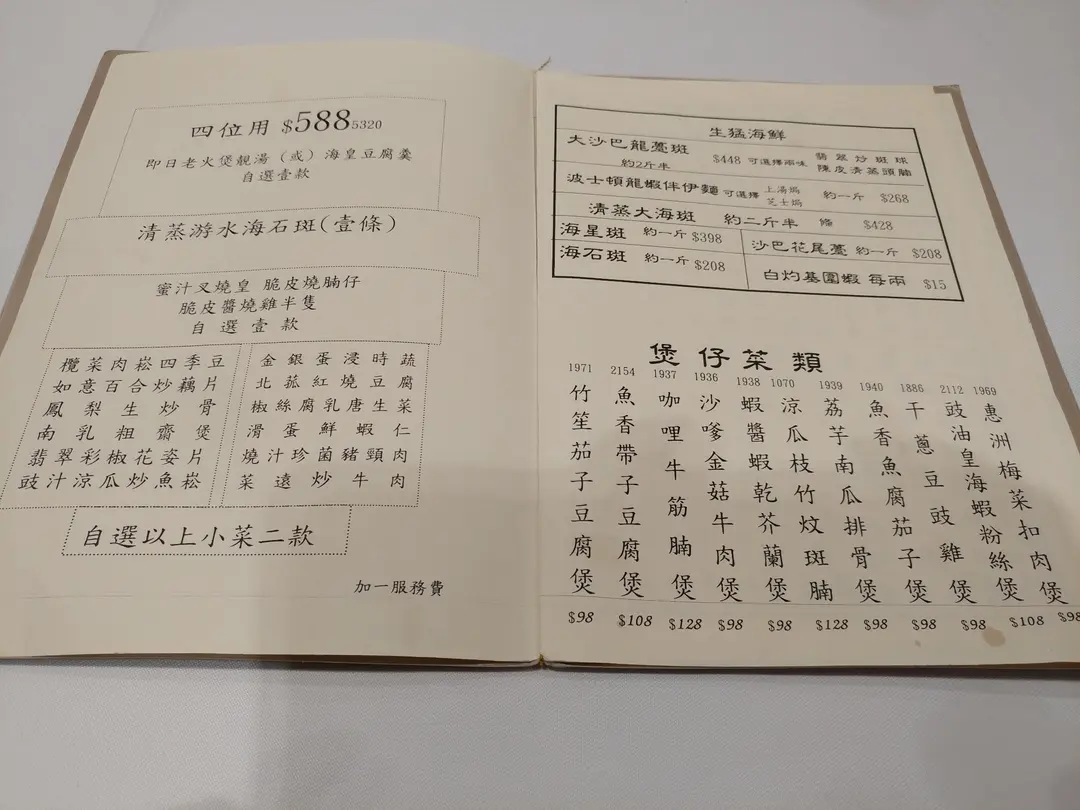 四位用 $588 5320
即日老火煲靚湯（或）海皇豆腐羹
自選壹款
清蒸游水海石斑(壹條)
蜜汁叉燒皇 脆皮燒腩仔
脆皮醬燒雞半隻
自選壹款
欖菜肉崧四季豆
如意百合炒藕片
鳳梨生炒骨
南乳粗齋煲
翡翠彩椒花姿片
豉汁涼瓜炒魚崧
金銀蛋浸時蔬
北菰紅燒豆腐
椒絲腐乳唐生菜
滑蛋鮮蝦仁
燒汁珍菌豬頸肉
菜遠炒牛肉
自選以上小菜二款
加一服務費
生猛海鮮
大沙巴龍躉斑 約2斤半 $448 可選擇兩味 翡翠炒斑球 陳皮清蒸頭腩
波士頓龍蝦伴伊麵 可選擇 上湯焗 芝士焗 約一斤 $268
清蒸大海斑 約二斤半 條 $428
海星斑 約一斤 $398
海石斑 約一斤 $208
沙巴花尾躉 約一斤 $208
白灼基圍蝦 每兩 $15
煲仔菜類
1971 竹笙茄子豆腐煲 $98
2154 魚香帶子豆腐煲 $108
1937 咖哩牛筋腩煲 $128
1936 沙嗲金菇牛肉煲 $98
1938 蝦醬蝦乾芥蘭煲 $98
1070 涼瓜枝竹炆斑腩 $128
1939 荔芋南瓜排骨煲 $98
1940 魚香魚腐茄子煲 $98
1886 干蔥豆豉雞煲 $98
2112 豉油皇海蝦粉絲煲 $108
1969 惠洲梅菜扣肉煲 $98